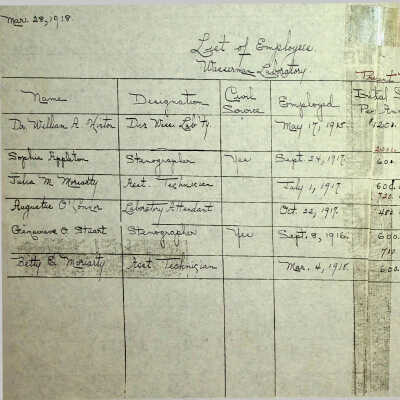 Mar. 28, 1918.
List of Employees
Wasserman Laboratory.
Name Designation Civil Service Employed Initial
Dr. William A. Hinton Dir. Wass. Lab'ty. May 17, 1915. $1200.
Sophie Appleton Stenographer Yes Sept. 24, 1917. 600.
Julia M. Moriarty Asst. Technician July 1, 1917 600.
720.
Augustine O'Connor Laboratory Attendant Oct. 22, 1917.
Genevieve O. Stuart Stenographer Yes Sept. 8, 1916.
Betty B. Moriarty Asst. Technician Mar. 4, 1918. 600.